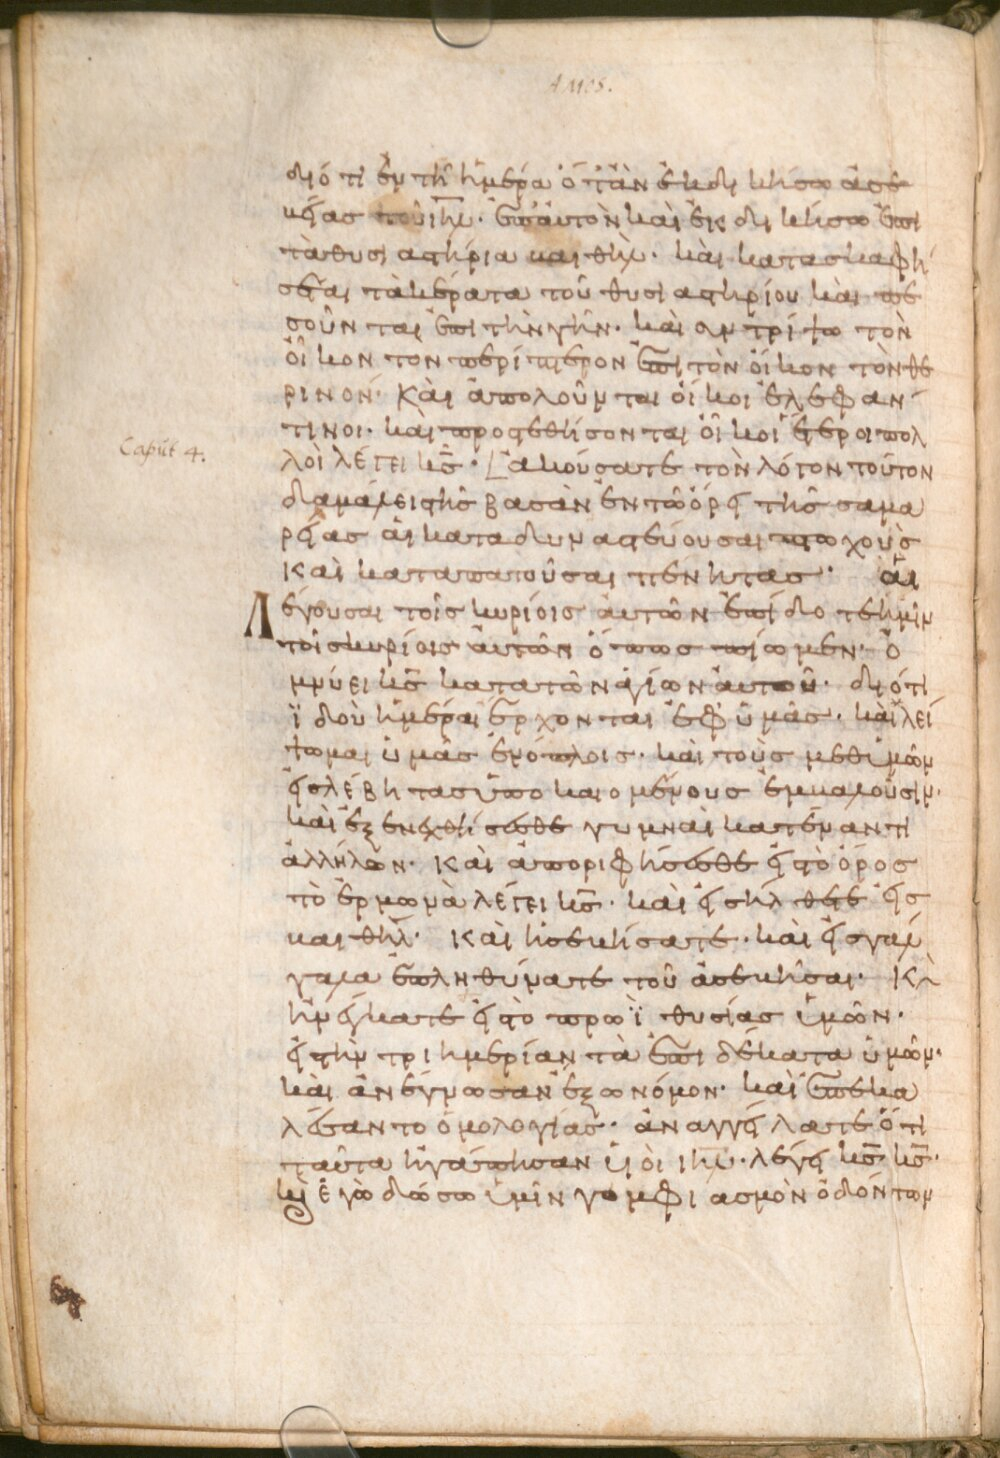 Amos.
διότι ἐν τῆ ἡμέρα ὅτὰν ἐκδικήσω ἀσε
βείας τοῦ ιηλ. ἐπ' ἀυτὸν καὶ ἐκδικήσω ἐπι
τὰ θυσιαστήρια βαιθὴλ. καὶ κατασκαφή
σεται τὰ κέρατα τοῦ θυσιαστηρίου καὶ πε
σοῦνται ἐπι τὴν γῆν. καὶ συντρίψω τὸν
ὂικον τον περίπτερον ἐπι τὸν ὄικον τὸν θε
ρινον. καὶ ἀπολοῦνται ὄικοι ἐλεφάν
τινοι. καὶ προστεθήσονται ὂικοι ἕτεροι πολ
λοὶ λέγει κς.
Caput 4.
ἀκούσατε τὸν λόγον τοῦτον
δαμάλεις τῆς βασὰν ἐν τῶ ὄρει τῆς σαμα
ρείας ἁι καταδυναστεύουσαι πτωχοὺς
καὶ καταπατοῦσαι πένητας. ἁι
λέγουσαι τοῖς κυρίοις ἀυτῶν ἐπίδοτε ἡμῖν
τοῖς κυρίοις ἀυτῶν ὅπως πίωμεν. ὀ
μνύει κς κατα τῶν ἁγίων ἀυτοῦ. διότι
ϊδοὺ ἡμέραι ἔρχονται ἐφ' ὑμᾶς. καὶ λεί
ψομαι ὑμᾶς ἐν ὅπλοις. καὶ τοὺς μεθ' ὑμῶν
εἰς λέβητας ὑποκαιομένους ἐμβαλοῦσιν.
καὶ ἐξενεχθήσεσθε γυμναὶ κατέναντι
ἀλλήλων. καὶ ἀποριφήσεσθε εἰς τὸ ὄρος
τὸ ἑρμωμὰ λέγει κς. καὶ εἰσήλθετε εἰς
βαιθὴλ. καὶ ἠσεβήσατε. καὶ εἰς γάλ
γαλα ἐπληθύνατε τοῦ ἀσεβῆσαι. κὶ
ἠνέγκατε εἰς τὸ πρωῒ θυσίας ὑμῶν.
εἰς τὴν τριημερίαν τὰ ἐπιδέκατα ὑμῶν.
καὶ ἀνέγνωσαν ἔξω νόμον. καὶ ἐπεκα
λέσαντο ὁμολογίας. ἀναγγείλατε ὅτι
ταῦτα ἠγάπησαν ὑιοὶ ιηλ. λέγει κς κς.
κὶ ἐγὼ δώσω ὑμῖν γομφιασμὸν ὀδόντων